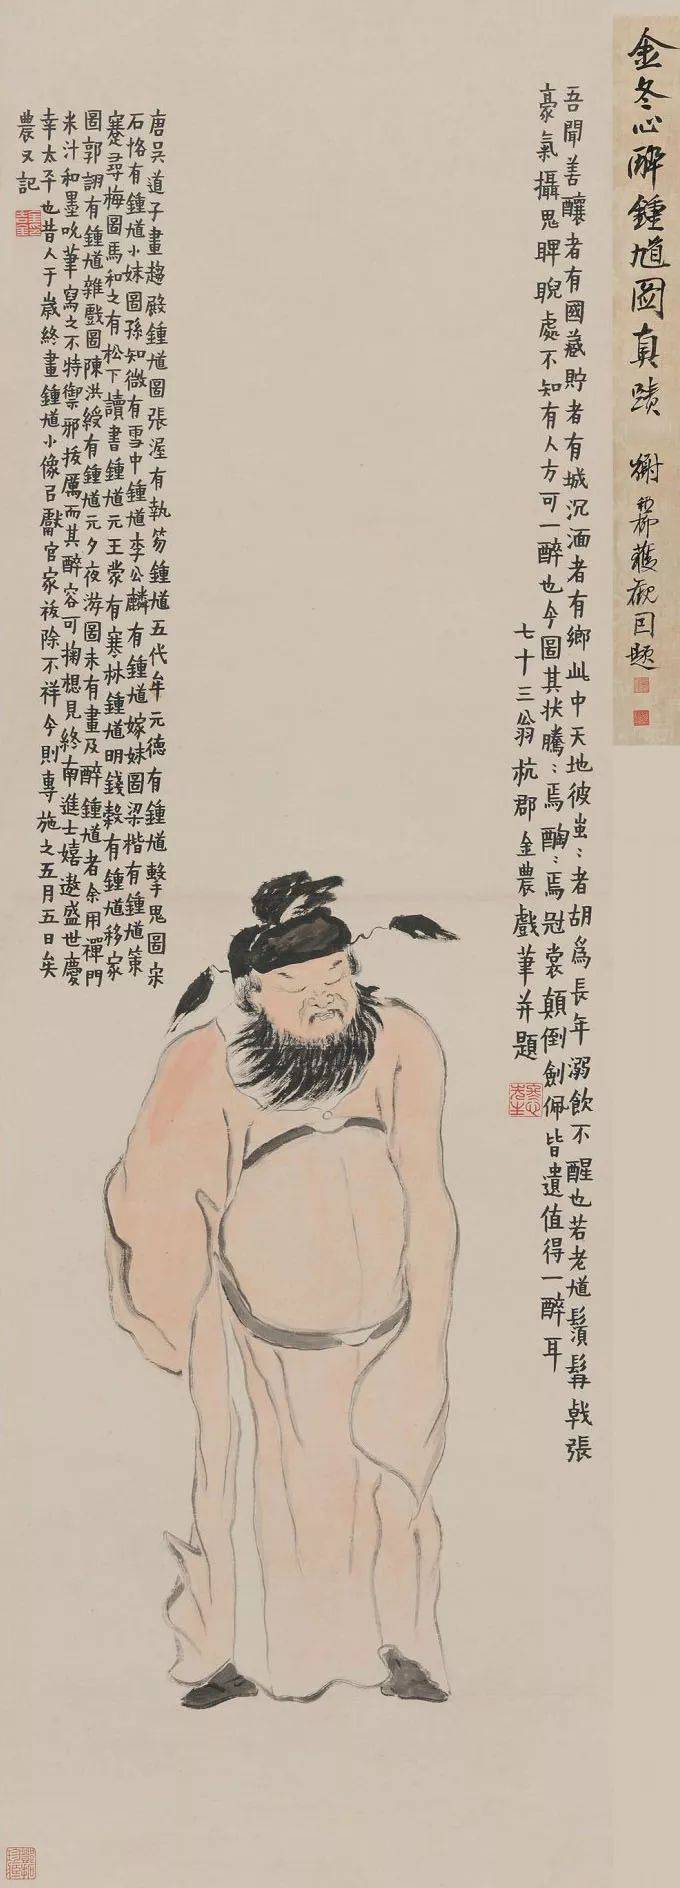 金冬心醉鍾馗圖真蹟
獲觀因題
吾聞善釀者有國藏貯者有城沉湎者有鄉此中天地彼蚩〻者胡為長年溺飲不醒也若老馗鬚髯戟張
豪氣攝鬼睥睨處不知有人方可一醉也今圖其狀騰〻焉醄〻焉冠裳顛倒劍佩皆遺值得一醉耳
七十三翁杭郡金農戲筆并題
唐吳道子畫趨殿鍾馗圖張渥有執笏鍾馗五代牟元德有鍾馗擊鬼圖宋
石恪有鍾馗小妹圖孫知微有雪中鍾馗李公麟有鍾馗嫁妹圖梁楷有鍾馗策
蹇尋梅圖馬和之有松下讀書鍾馗元王蒙有寒林鍾馗明錢穀有鍾馗移家
圖郭詡有鍾馗雜戲圖陳洪綬有鍾馗元夕夜游圖未有畫及醉鍾馗者余用禪門
米汁和墨吮筆寫之不特禦邪拔厲而其醉容可掬想見終南進士嬉遨盛世慶
幸太平也昔人于歲終畫鍾馗小像㠯獻官家祓除不祥今則專施之五月五日矣
農又記